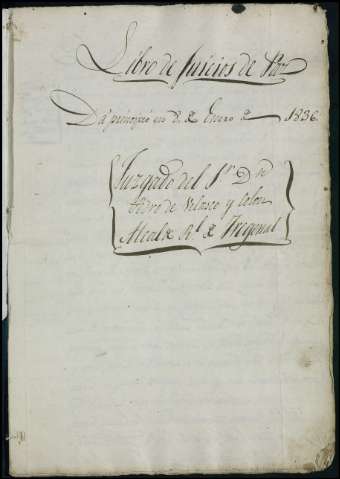 Libro de Juicios de
Da principio en 2 de Enero de 1836
Juzgado del Sr. Dn.
Pedro de Velasco y
Alcalde Rl. de